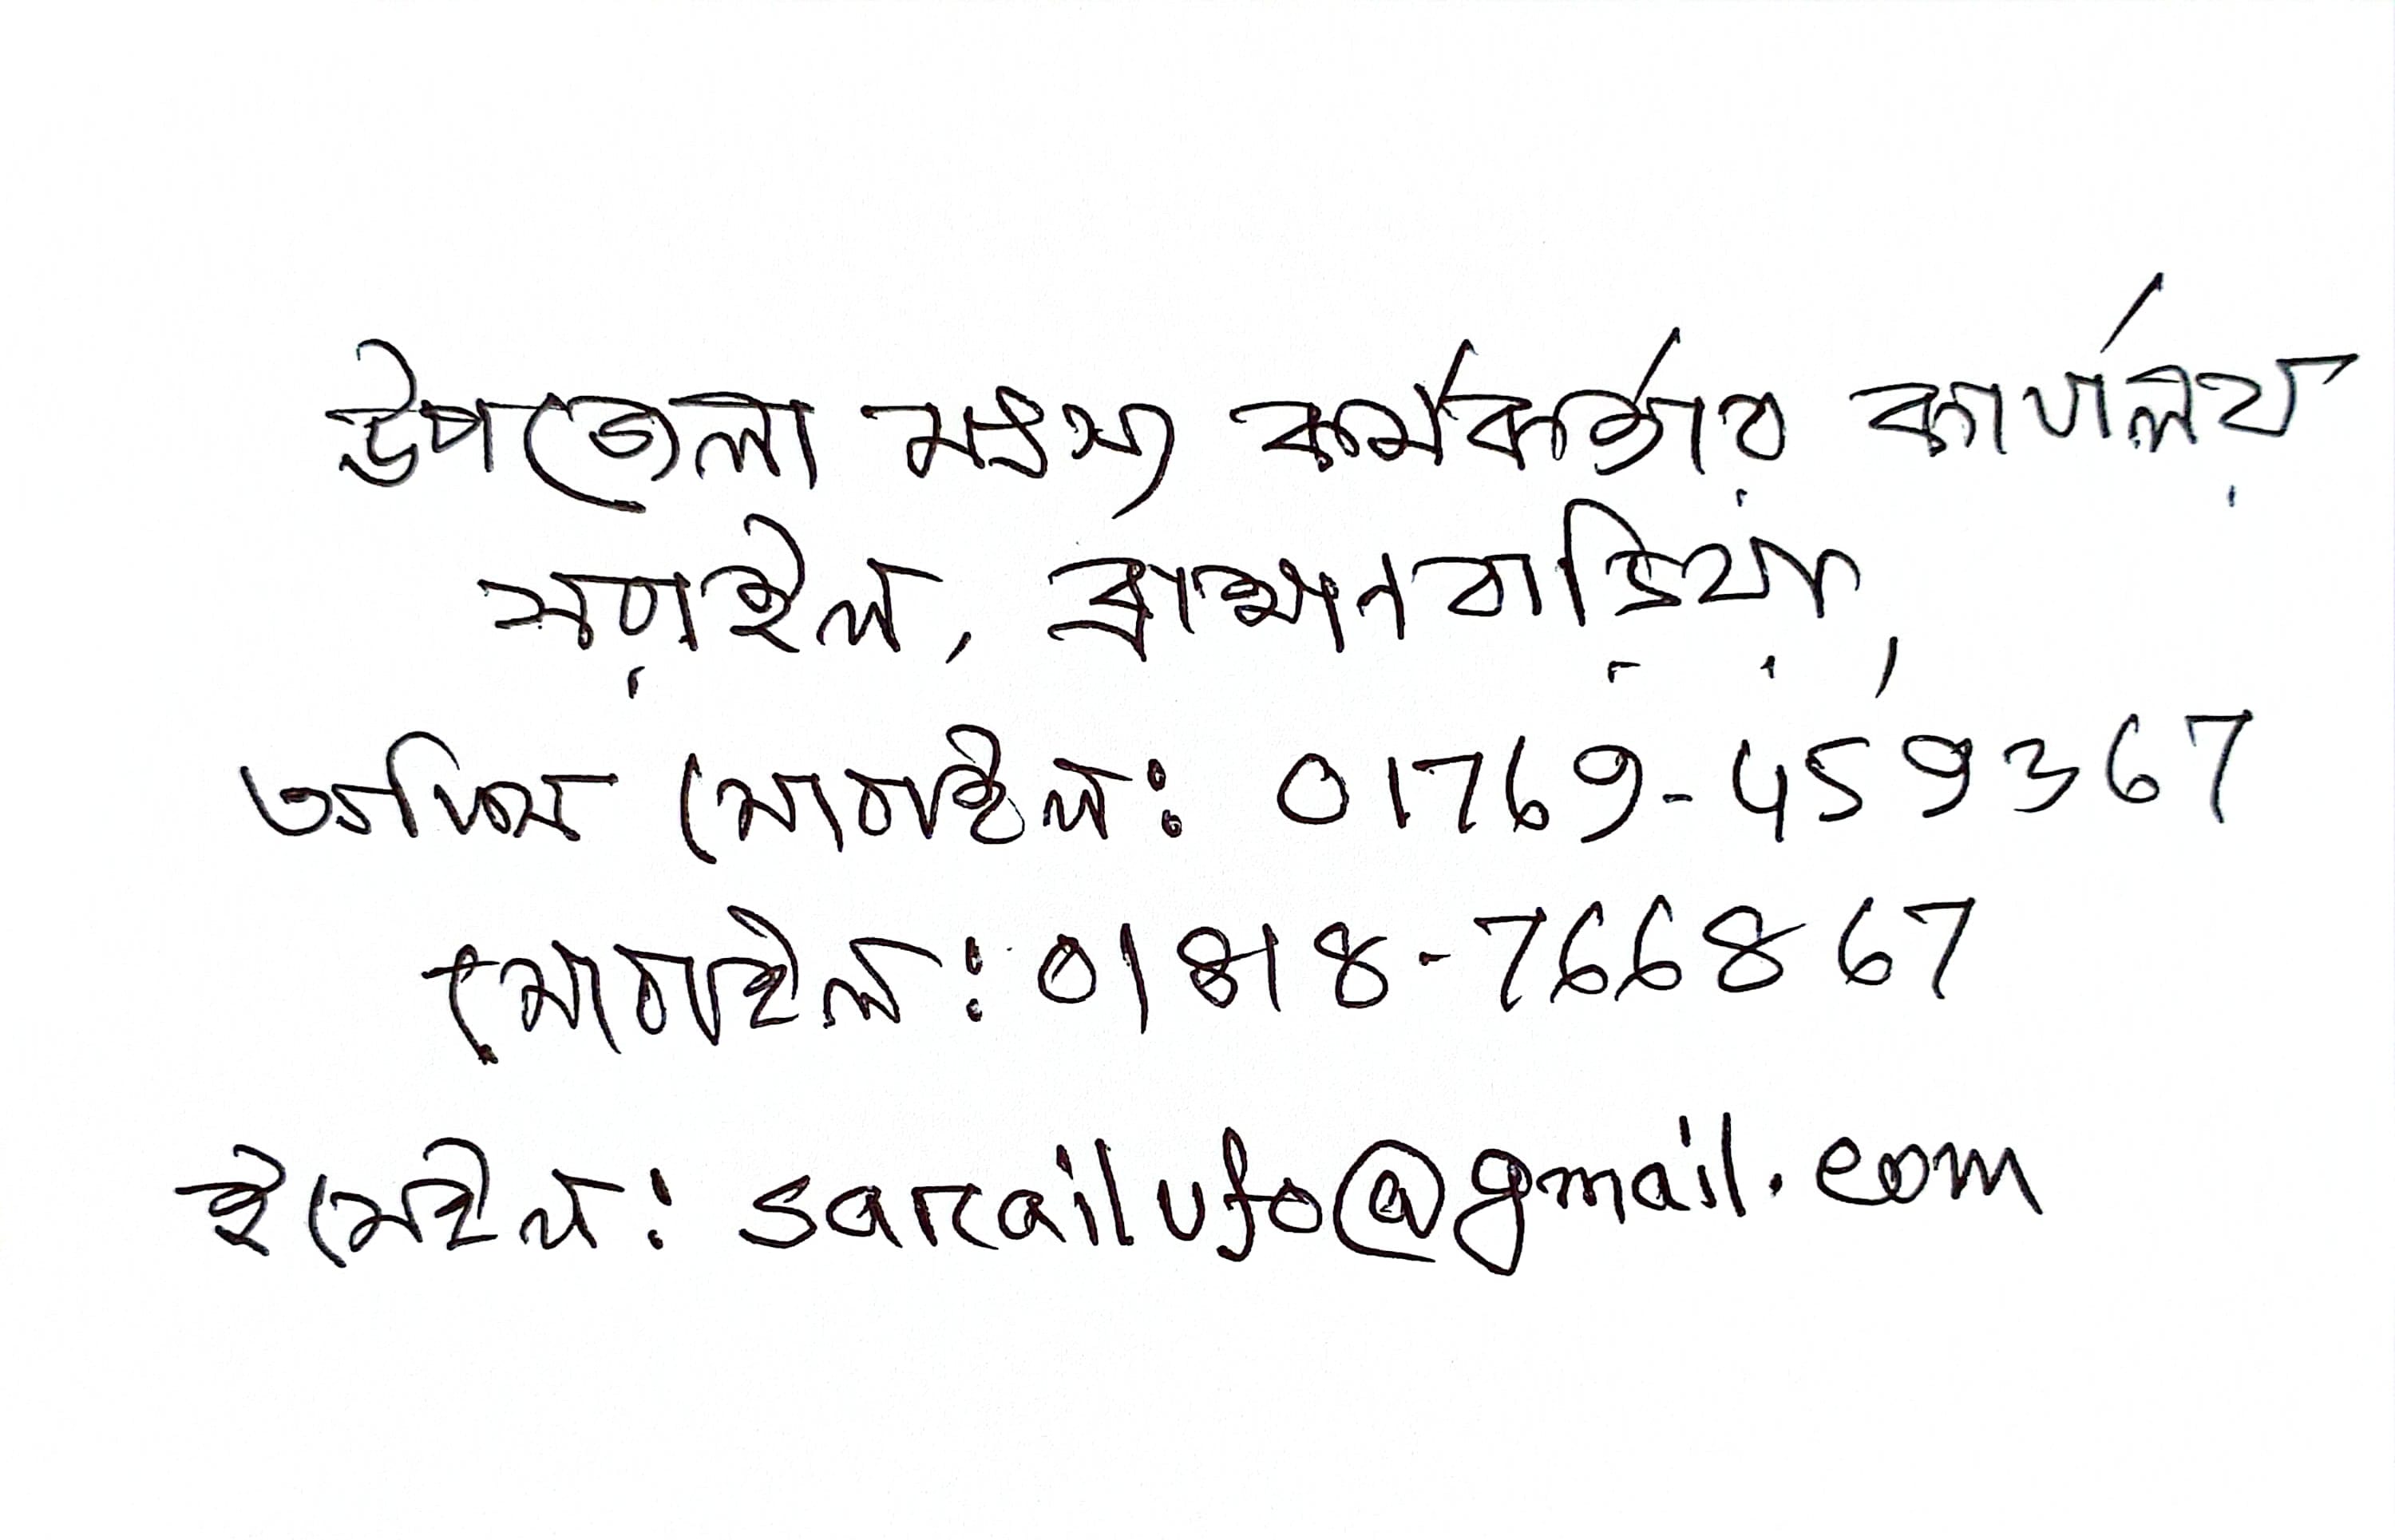 উপজেলা মৎস্য কর্মকর্তার কার্যালয়
সরাইল, ব্রাহ্মনবাড়িয়া,
অফিস মোবাইল: 01769-459367
মোবাইল: 01818-766867
ইমেইল: sarailufo@gmail.com